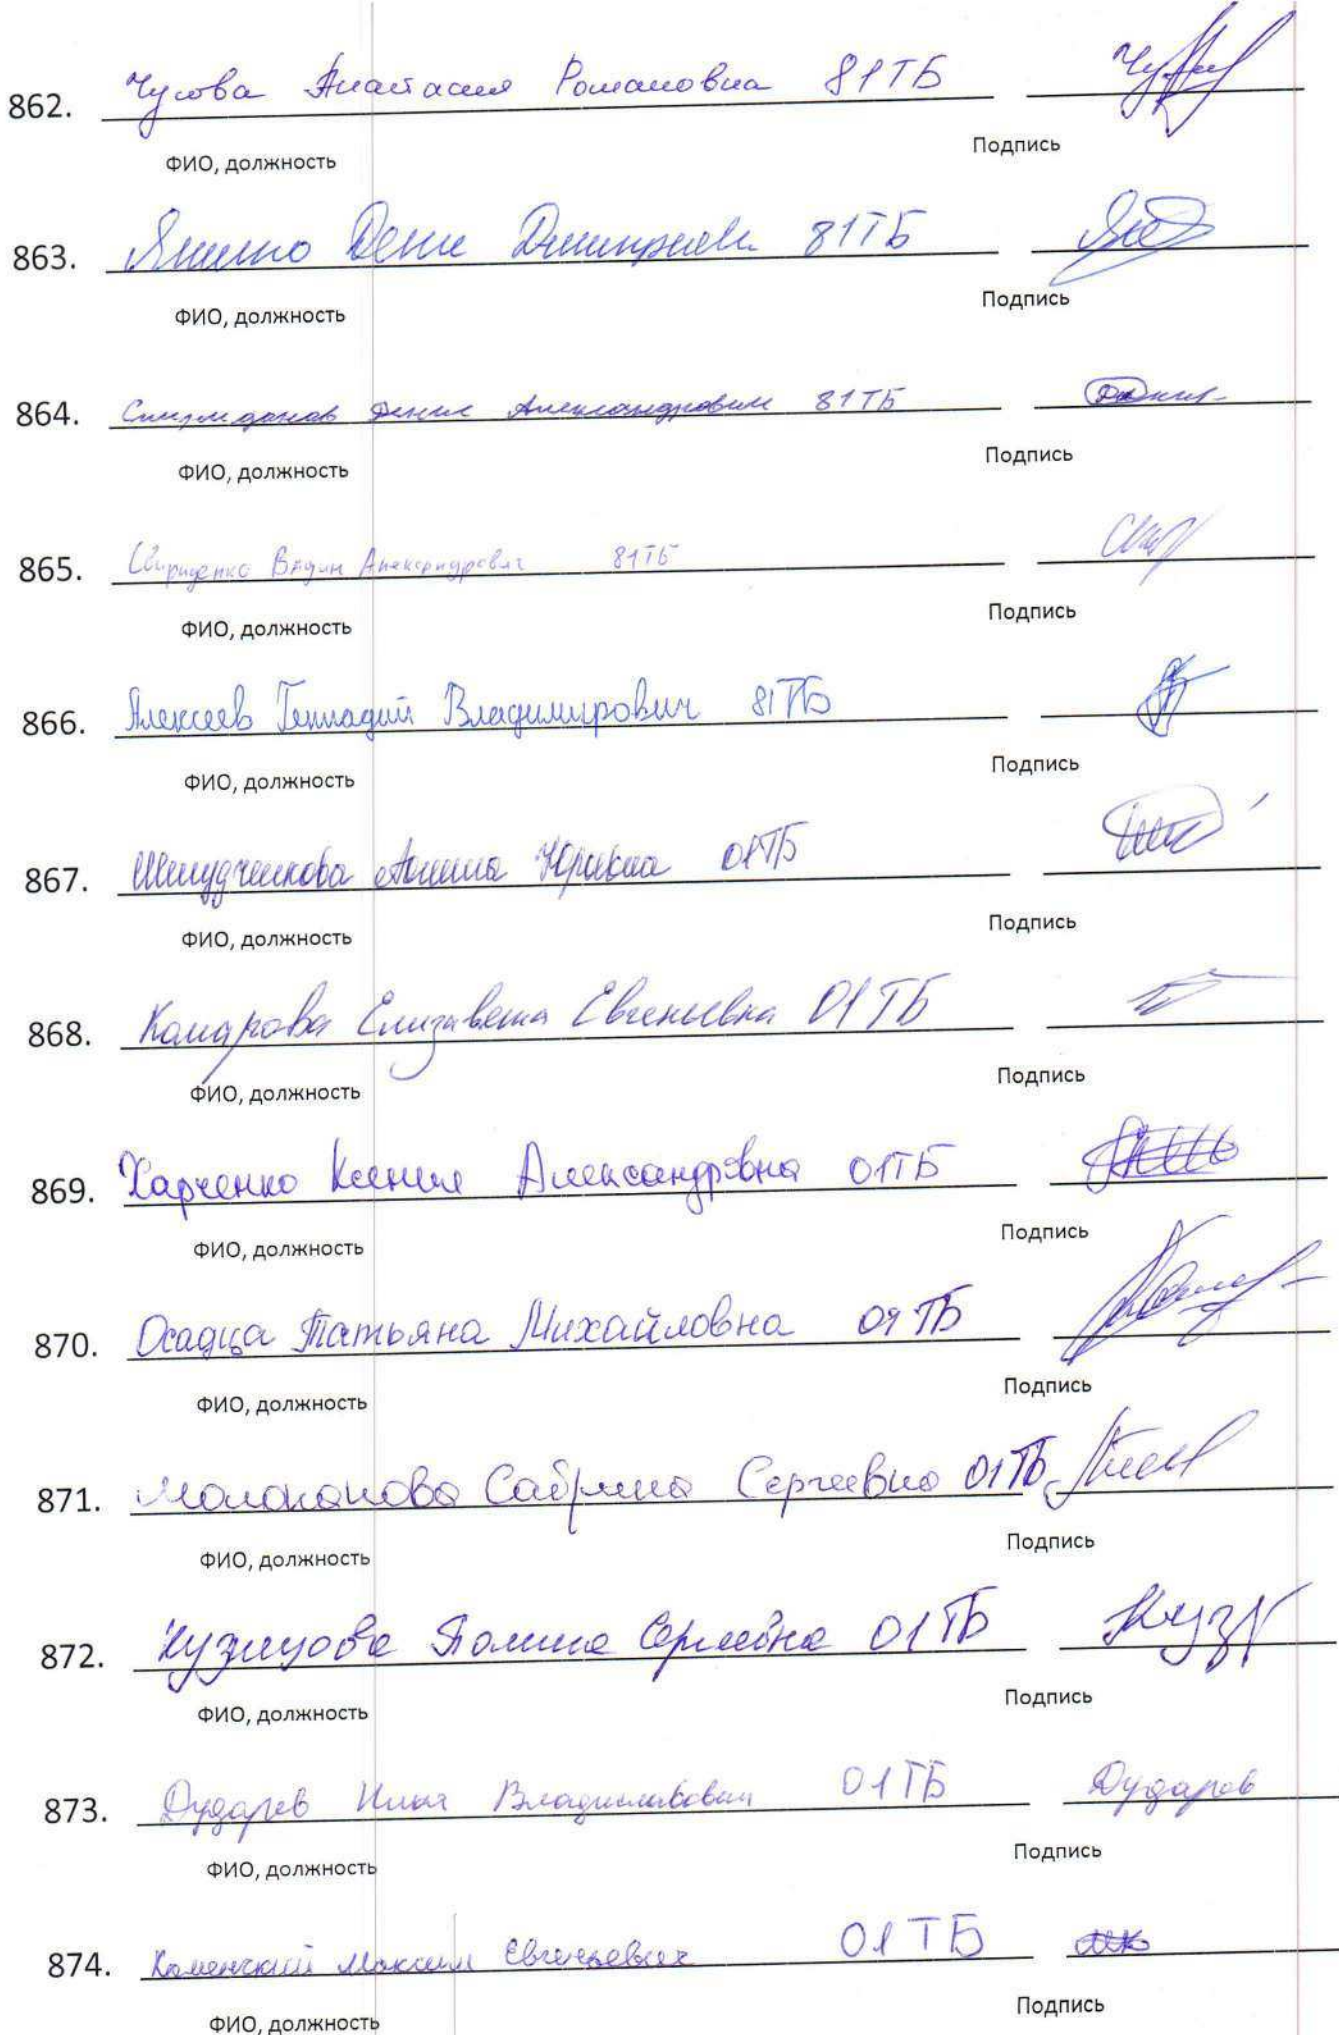 862. Чусова Анастасия Романовна 81ТБ
ФИО, должность Подпись
863. Дмитриевич 81ТБ
ФИО, должность Подпись
864. Денис Александрович 81ТБ
ФИО, должность Подпись
865. Свириденко Вадим Александрович 81ТБ
ФИО, должность Подпись
866. Алексеев Геннадий Владимирович 81ТБ
ФИО, должность Подпись
867. Юрьевна 01ТБ
ФИО, должность Подпись
868. Комарова Елизавета Евгеньевна 01ТБ
ФИО, должность Подпись
869. Харченко Ксения Александровна 01ТБ
ФИО, должность Подпись
870. Осадца Татьяна Михайловна 01ТБ
ФИО, должность Подпись
871. Молоканова Сабрина Сергеевна 01ТБ
ФИО, должность Подпись
872. Кузнецова Полина Сергеевна 01ТБ Кузн
ФИО, должность Подпись
873. Дударев Илья Владиславович 01ТБ Дударев
ФИО, должность Подпись
874. Каменский Максим Евгеньевич 01ТБ
ФИО, должность Подпись